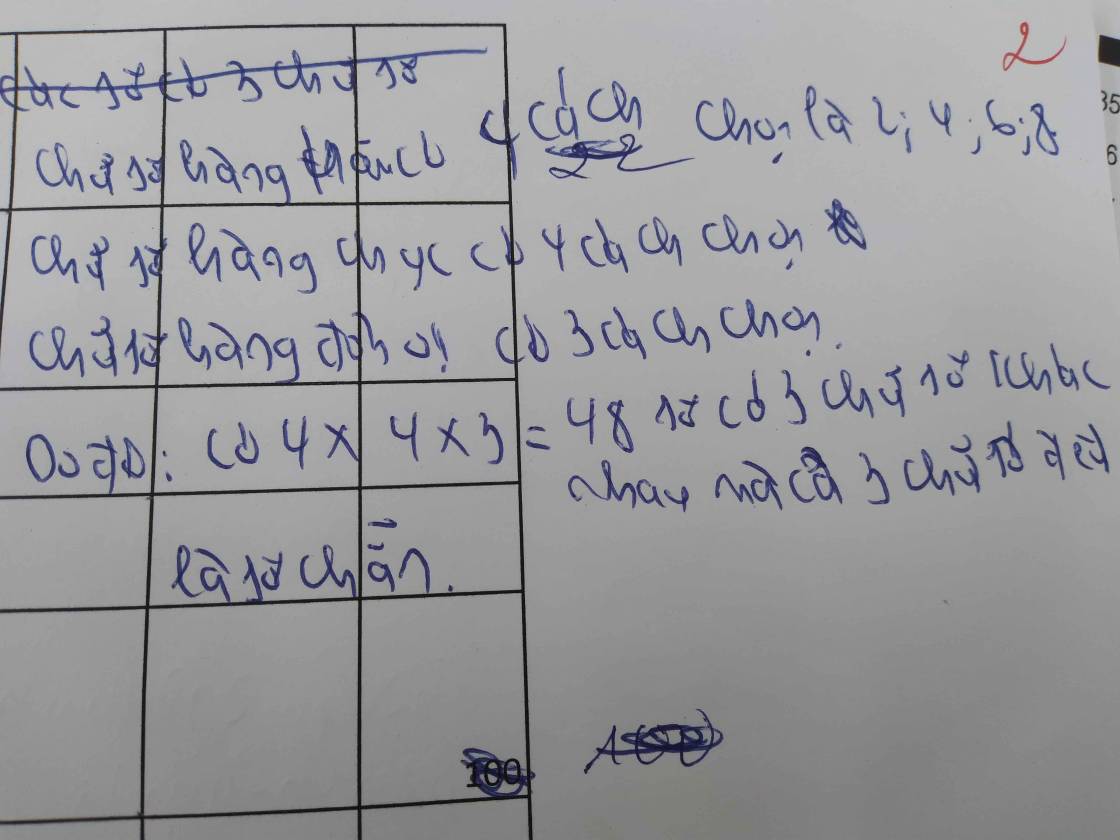 2
Các số có 3 chữ số
Chữ số hàng trăm có 4 cách chọn là 2; 4; 6; 8
Chữ số hàng chục có 4 cách chọn
Chữ số hàng đơn vị có 3 cách chọn.
Do đó: có 4 x 4 x 3 = 48 số có 3 chữ số khác
nhau mà cả 3 chữ số đều
là số chẵn.
100
35
6